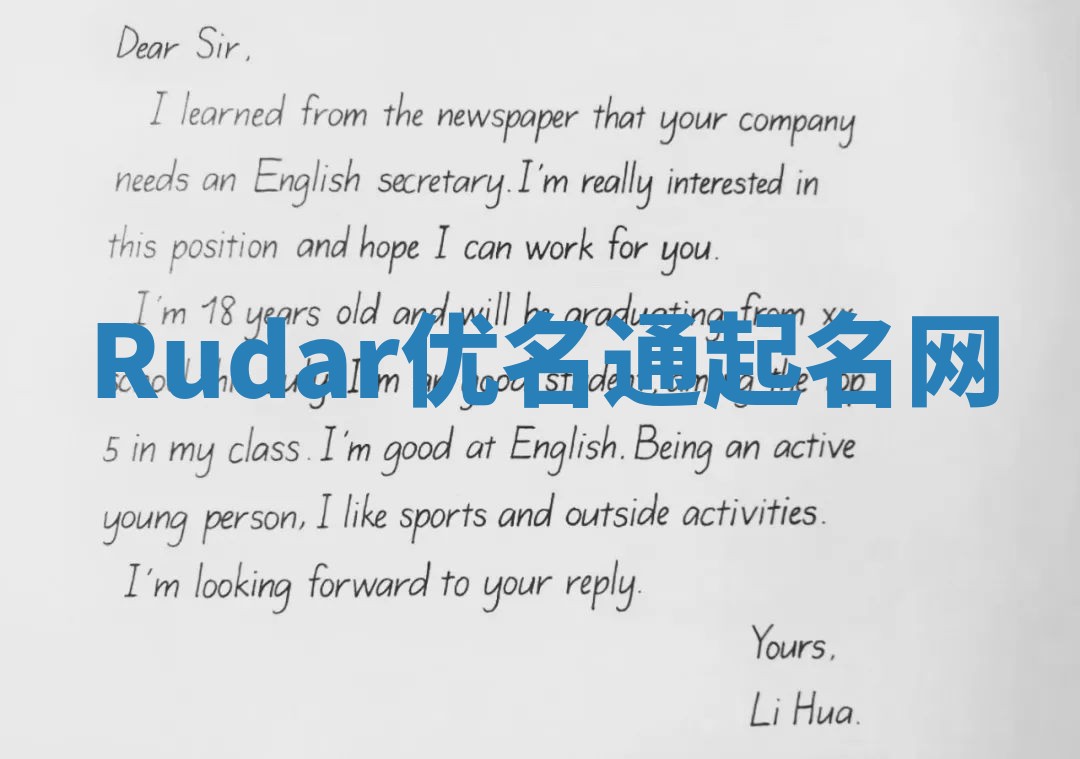 Dear Sir,
I learned from the newspaper that your company
needs an English secretary. I'm really interested in
this position and hope I can work for you.
I'm 18 years old and will be graduating from xx
Rudar优名通起名网
I'm good student, the top
5 in my class. I'm good at English. Being an active
young person, I like sports and outside activities.
I'm looking forward to your reply.
Yours,
Li Hua.